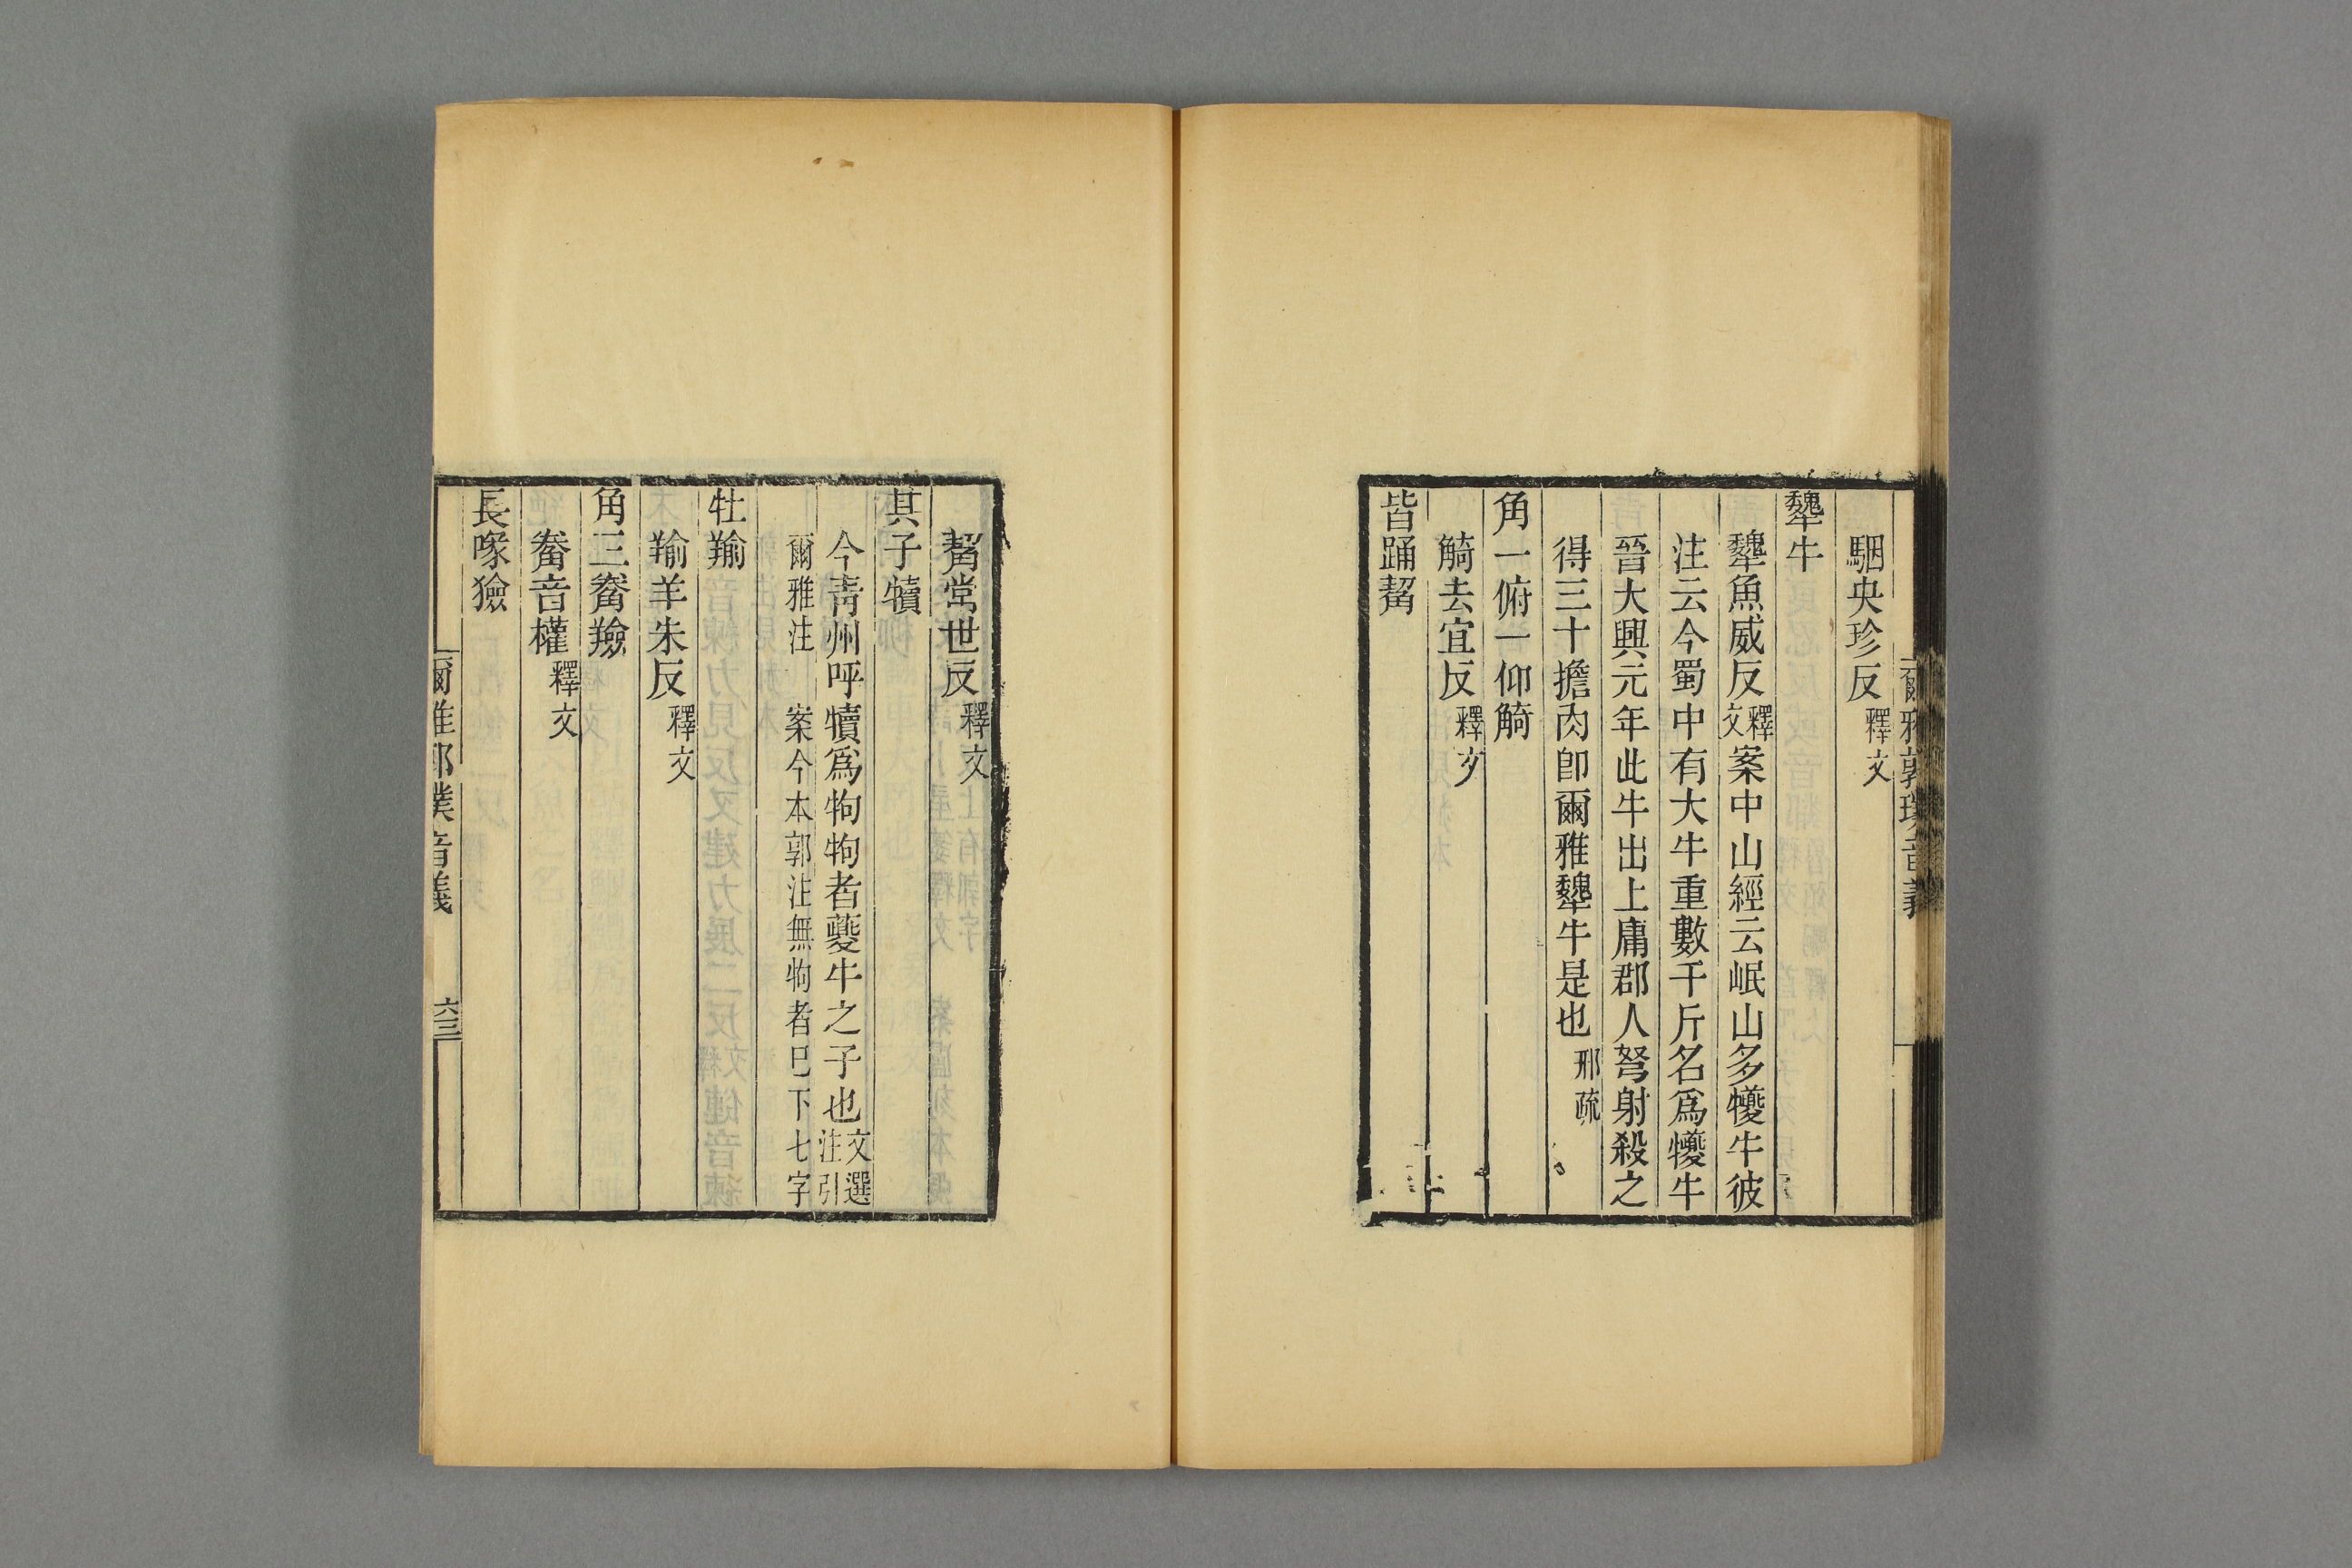 爾雅郭璞音義
駰央珍反釋文
犩牛
犩魚威反釋文案中山經云岷山多犪牛彼
注云今蜀中有大牛重數千斤名爲犪牛
晉大興元年此牛出上庸郡人弩射殺之
得三十擔肉卽爾雅犩牛是也邢疏
角一俯一仰觭
觭去宜反釋文
皆踊觢
觢常世反釋文
其子犢
今靑州呼犢爲㸬㸬者夔牛之子也文選注引
爾雅注 案今本郭注無㸬者巳下七字
牡羭
羭羊朱反釋文
角三觠羷
觠音權釋文
長喙獫
爾雅郭璞音義 六三